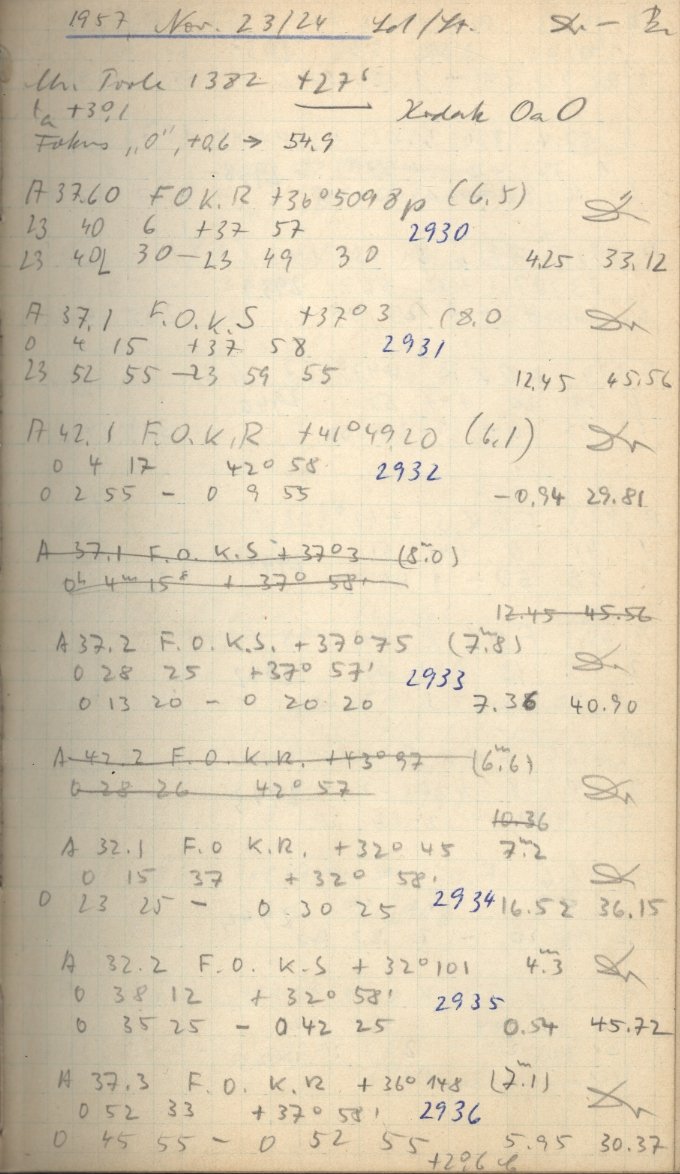 1957 Nov. 23/24
1382 +27ˢ
+3°,1 → Kodak OaO
Fokus „0", +0,6 → 54.9
A 37.60 F O K.R +36°5098p (6,5)
23 40 6 +37 57 2930
23 40 30 – 23 49 30 4.25 33.12
A 37.1 F.O.K.S +37°3 (8.0
0 4 15 +37 58 2931
23 52 55 – 23 59 55 12.45 45.56
A 42.1 F.O.K.R +41°4920 (6,1)
0 4 17 42° 58 2932
0 2 55 – 0 9 55 –0.94 29.81
A 37.1 F.O. K.S +37°3 (8ᵐ.0)
0ʰ 4ᵐ 15ˢ + 37° 58'
12.45 45.56
A 37.2 F.O.K.S. +37°75 (7ᵐ.8)
0 28 25 +37° 57' 2933
0 13 20 – 0 20 20 7.36 40.90
A 42.2 F.O.K.R. +43°97 (6ᵐ.6)
0 28 26 42° 57
10.36
A 32.1 F.O K.R. +32° 45 7ᵐ.2
0 15 37 +32° 58'
0 23 25 – 0 30 25 2934 16.52 36.15
A 32.2 F.O. K.S + 32°101 4ᵐ.3
0 38 12 + 32° 58' 2935
0 35 25 – 0 42 25 0.54 45.72
A 37.3 F.O.K.R +36°148 (7ᵐ.1)
0 52 33 +37° 58' 2936
0 45 55 – 0 52 55 5.95 30.37
+2°,6